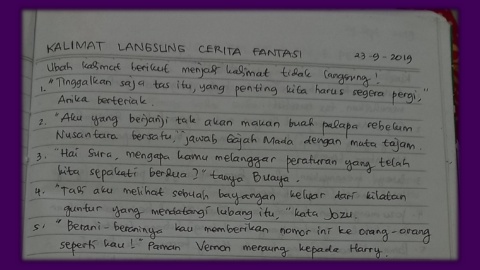 KALIMAT LANGSUNG CERITA FANTASI 23-9-2019
Ubah kalimat berikut menjadi kalimat tidak langsung!
1. "Tinggalkan saja tas itu, yang penting kita harus segera pergi,"
Anika berteriak.
2. "Aku yang berjanji tak akan makan buah palapa sebelum
Nusantara bersatu," jawab Gajah Mada dengan mata tajam.
3. "Hai Sura, mengapa kamu melanggar peraturan yang telah
kita sepakati berdua?" tanya Buaya.
4. "Tadi aku melihat sebuah bayangan keluar dari kilatan
guntur yang mendatangi lubang itu," kata Jozu.
5. "Berani-beraninya kau memberikan nomor ini ke orang-orang
seperti kau!" Paman Vernon meraung kepada Harry.